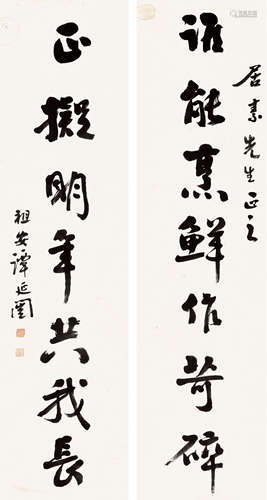 居素先生正之
誰能烹鮮作苛碎
正擬明年共我長
祖安譚延闓